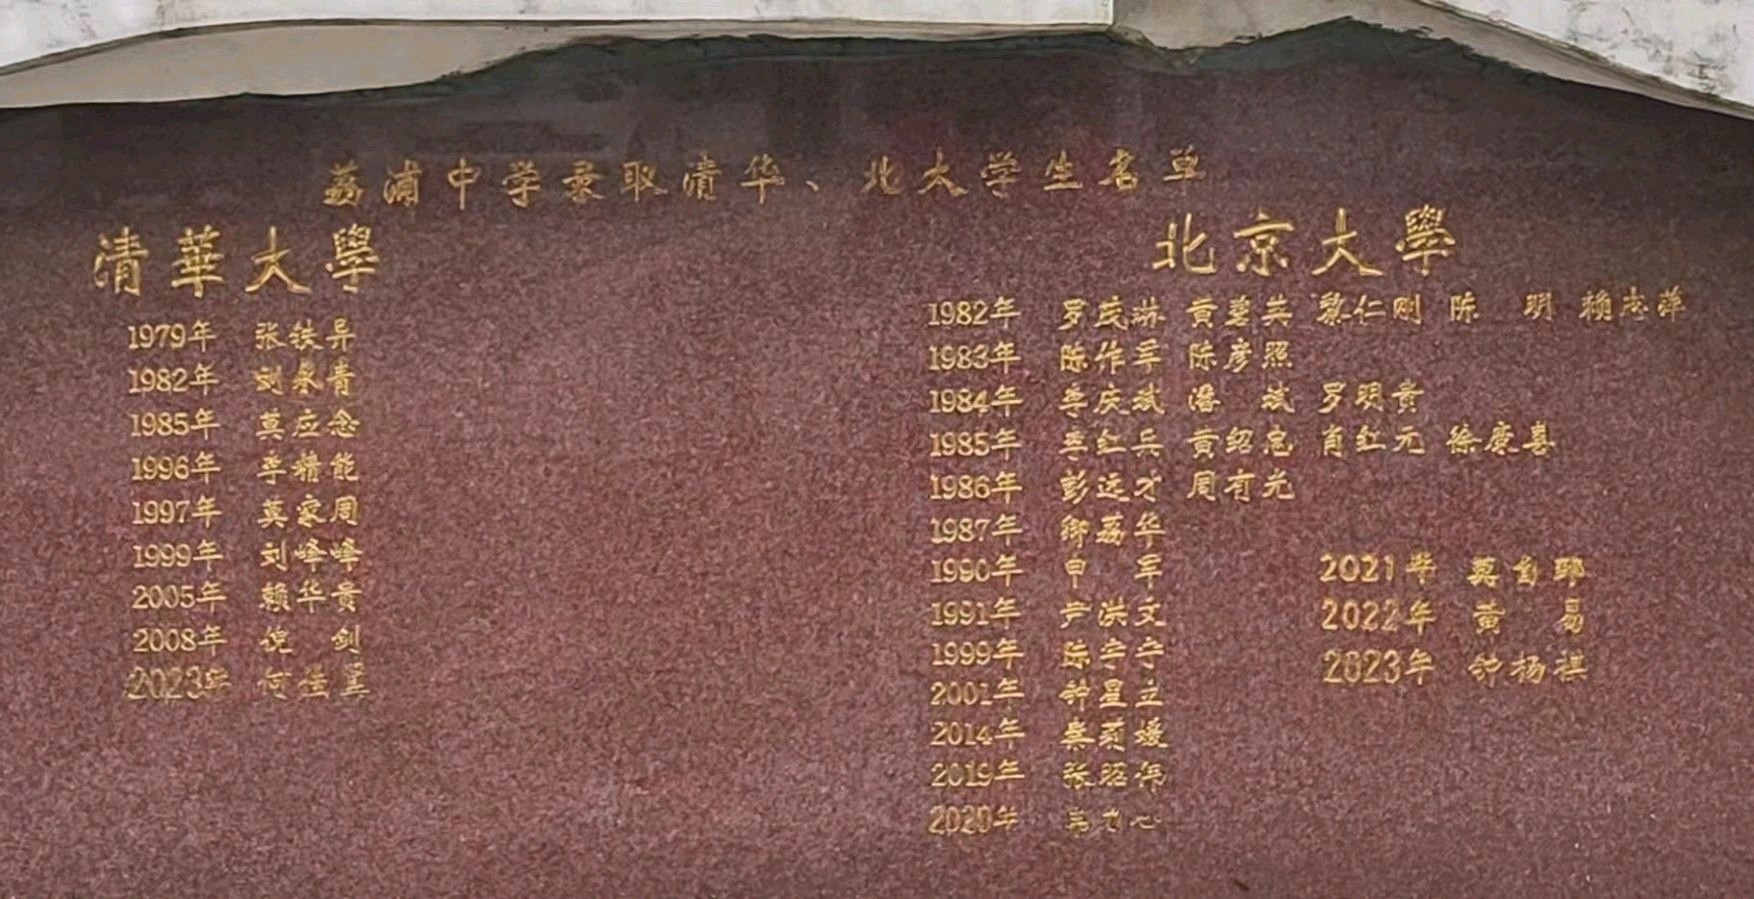 荔浦中学录取清华、北大学生名单
清華大學
1979年 张铁异
1982年 刘永青
1985年 莫应念
1996年 李精能
1997年 莫家周
1999年 刘峰峰
2005年 赖华贵
2008年 倪 剑
2023年 何 冀
北京大學
1982年 罗茂琳 黄碧英 黎仁刚 陈 明 赖志萍
1983年 陈作军 陈彦照
1984年 李庆斌 潘 斌 罗明贵
1985年 李红兵 黄绍忠 肖红元 徐庆喜
1986年 彭远才 周有光
1987年 卿荔华
1990年 申 军
1991年 尹洪文
1999年 陈宇宁
2001年 钟星立
2014年 秦莉媛
2019年 张昭伟
2020年 心
2021年 莫自
2022年 黄 易
2023年 钟杨祺